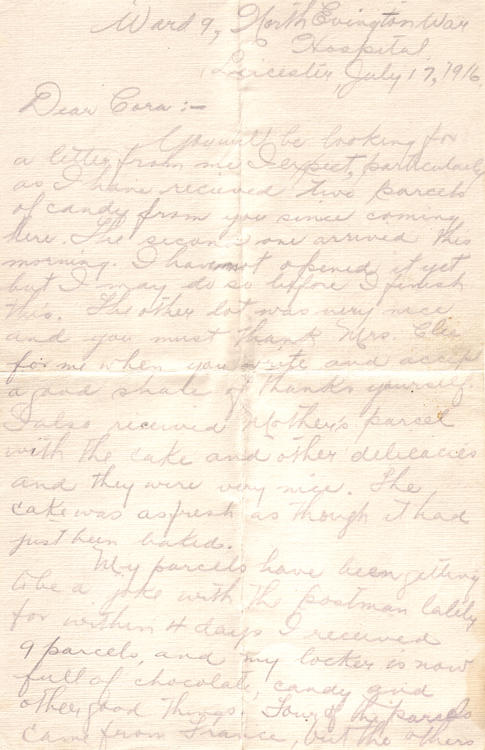 Ward 9, North Evington War
Hospital
Leicester, July 17, 1916
Dear Cora :-
You will be looking for
a letter from me I expect, particularly
as I have recieved two parcels
of candy from you since coming
here. The second one arrived this
morning. I have not opened it yet
but I may do so before I finish
this. The other lot was very nice
and you must thank Mrs.
for me when you write and accept
a good share of thanks yourself.
I also received Mother's parcel
with the cake and other delicacies
and they were very nice. The
cake was as fresh as though it had
just been baked.
My parcels have been getting
to be a joke with the postman lately
for within 4 days I received
9 parcels, and my locker is now
full of chocolate, candy and
other good things. Four of the parcels
came from France, but the others